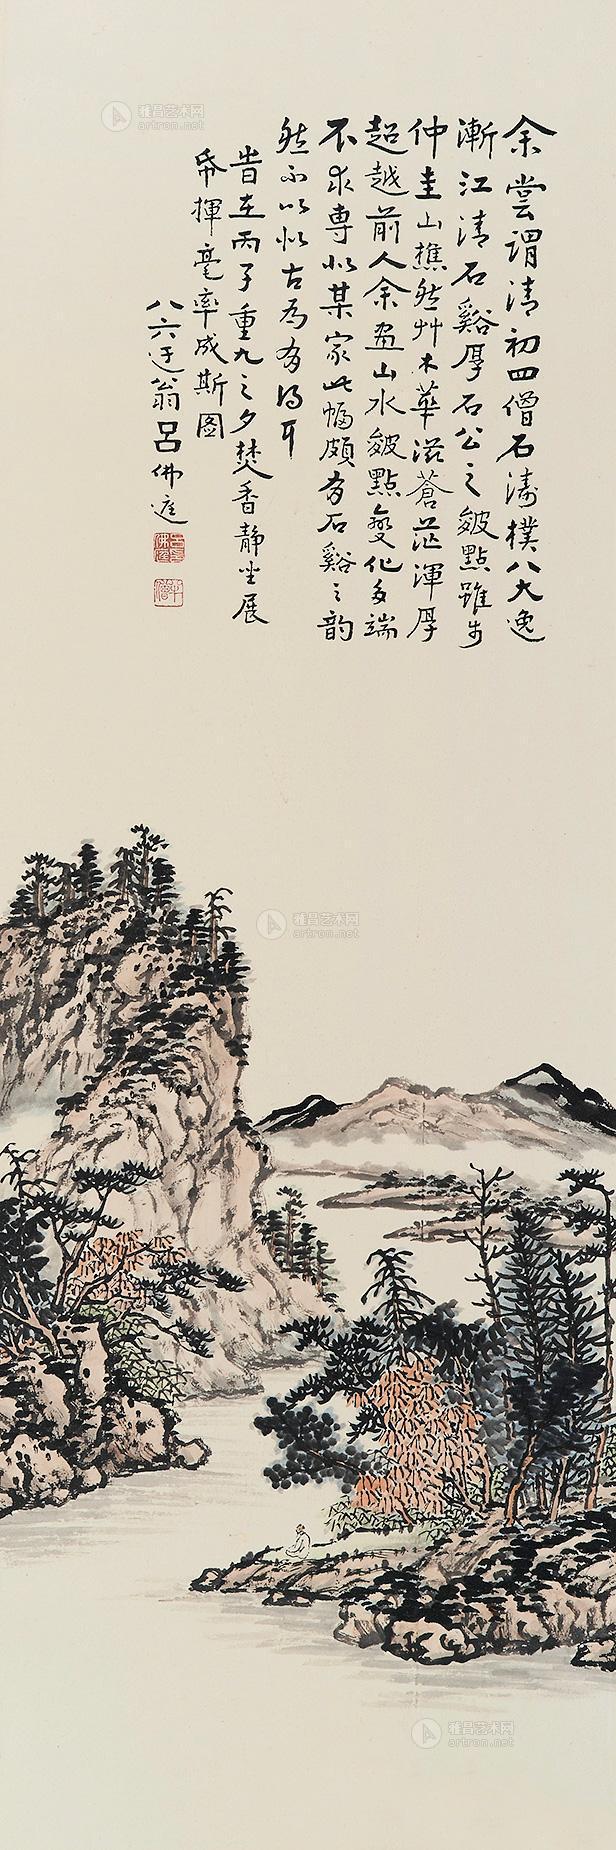 余嘗謂清初四僧石濤樸八大逸
漸江清石谿厚石公之皴點雖步
仲圭山樵然艸木華滋蒼茫渾厚
超越前人余畫山水皴點變化多端
不求專似某家此幅頗有石谿之韵
然不以似古為有得耳
昔在丙子重九之夕焚香靜坐展
帋揮毫率成斯圖
八六迂翁呂佛庭
雅昌艺术网
artron.net
雅昌艺术网
artron.net
雅昌艺术网
artron.net